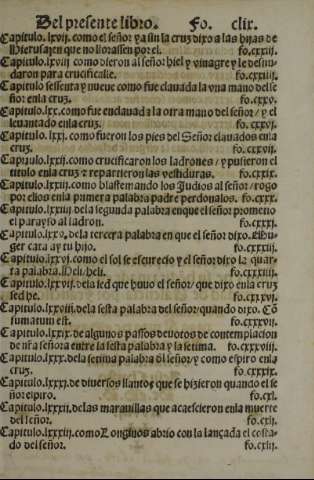 Del presente libro. Fo. clix.
Capitulo.lxvij. como el señor ya sin la cruz dixo a las hijas de
Hierusalen que no llorassen por el. fo.cxxij.
Capitulo.lxviij como dieron al señor hiel y vinagre y le desnu-
daron para crucificalle. fo.cxxiiij.
Capitulo sessenta y nueue como fue clauada la vna mano del se
ñor enla cruz. fo.cxxv.
Capitulo.lxx.como fue enclauada la otra mano del señor/ y el
leuantado enla cruz. fo.cxxvj.
Capitulo.lxxj.como fueron los pies del Señor clauados enla
cruz. fo.cxxvij.
Capitulo.lxxij.como crucificaron los ladrones/ y pusieron el
titulo enla cruz ⁊ repartieron las vestiduras. fo.cxxix.
Capitulo.lxxiij.como blasfemando los Judios al señor/ rogo
por ellos enla primera palabra padre perdonalos. fo.cxxx.
Capitulo.lxxiiij dela segunda palabra enque el señor prometio
el parayso al ladron. fo.cxxxj.
Capitulo.lxxv.dela tercera palabra en que el señor dixo. Mu-
ger cata ay tu hijo. fo.cxxxij.
Capitulo.lxxvj.como el sol se escurecio y el señor dixo la quar-
ta palabra.Heli/heli. fo.cxxxiiij.
Capitulo.lxxvij.dela sed que huuo el señor/ que dixo enla cruz
sed he. fo.cxxxvj.
Capitulo.lxxviij.dela sesta palabra del señor/quando dixo. Cõ
sumatum est. fo.cxxxvij.
Capitulo.lxxix.de algunos passos deuotos de contemplacion
de nr̃a señora entre la sesta palabra y la setima. fo.cxxxviij.
Capitulo.lxxx.dela setima palabra dl señor/y como espiro enla
cruz. fo.cxxxix.
Capitulo.lxxxj.de diuersos llantos que se hizieron quando el se
ñor espiro. fo.cxl.
Capitulo.lxxxij.delas marauillas que acaescieron enla muerte
del señor. fo.cxlj.
Capitulo.lxxxiij.como Longinos abrio con la lançada el costa-
do del señor. fo.cxlij.